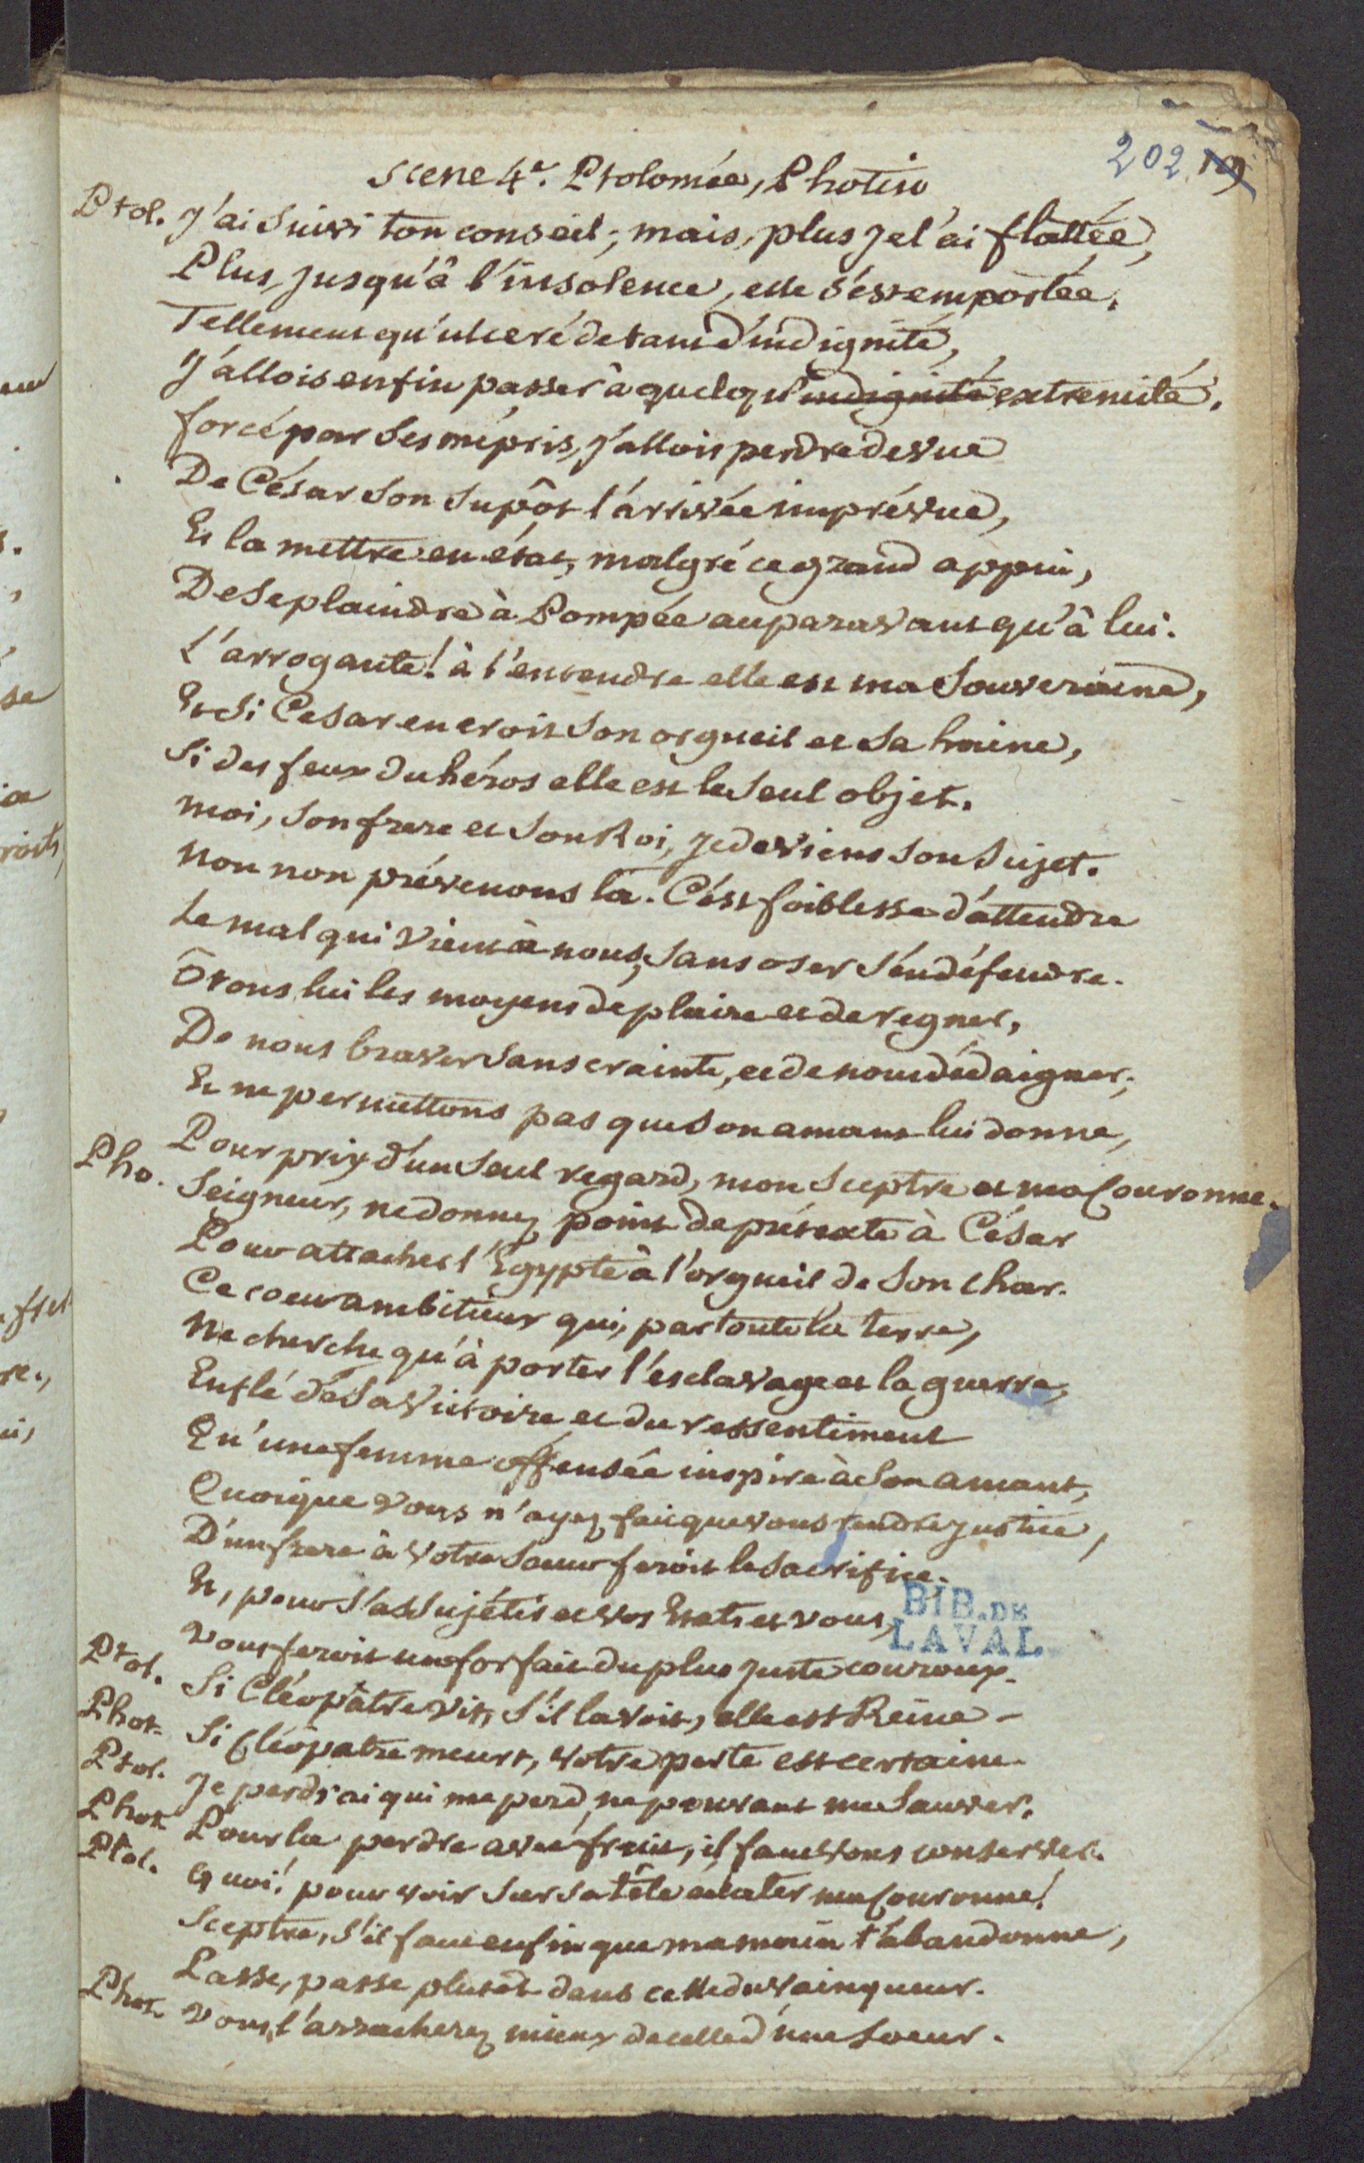 202 19
scene 4e. Ptolomée, Photin
Ptol. J'ai suivi ton conseil; mais, plus je l'ai flattée,
Plus, jusqu'à l'insolence, elle s'est emportée.
Tellement qu'ulceré de tant d'indignité,
J'allois enfin passer à quelqu'indignité extremité.
forcé par ses mépris, j'allois perdre de vue
De César son supôt l'arrivée imprévue,
Et la mettre en état, malgré ce grand appui,
De se plaindre à Pompée auparavant qu'à lui.
L'arrogante! à l'entendre elle est ma Souveraine,
Et si Cesar en croit son orgueil et sa haine,
Si des feux du héros elle est le seul objet.
moi, son frere et son Roi, je deviens son sujet.
Non non prévenons la. C'est foiblesse d'attendre
Le mal qui vient à nous, sans oser s'en défendre.
Ôtons lui les moyens de plaire et de regner,
De nous braver sans crainte, et de nous dédaigner;
Et ne permettons pas que son amant lui donne,
Pour prix d'un seul regard, mon sceptre et ma Couronne.
Pho. Seigneur, ne donnez point de prétexte à César
Pour attacher l'Egypte à l'orgueil de son char.
Ce coeur ambitieux qui, par toute la terre,
Ne cherche qu'à porter l'esclavage et la guerre,
Enflé de sa victoire et du ressentiment
Qu'une femme offensée inspire à son amant,
Quoique vous n'ayez fait que vous rendre justice,
D'un frere à votre soeur feroit le sacrifice.
Et, pour s'assujétir et vos Etats et vous,
Vous feroit un forfait du plus juste couroux.
BIB. DE
LAVAL
Ptol. Si Cléopâtre vit, s'il la voit, elle est Reine -
Phot. Si Cléopatre meurt, votre perte est certaine.
Ptol. Je perdrai qui me perd, ne pouvant me sauver.
Phot. Pour la perdre avec fruit, il faut vous conserver.
Ptol. Quoi! pour voir sur sa tête éclater ma Couronne!
Sceptre, s'il faut enfin que ma main t'abandonne,
Passe, passe plutôt dans celle du vainqueur.
Phot. Vous l'arracherez mieux de celle d'une soeur.